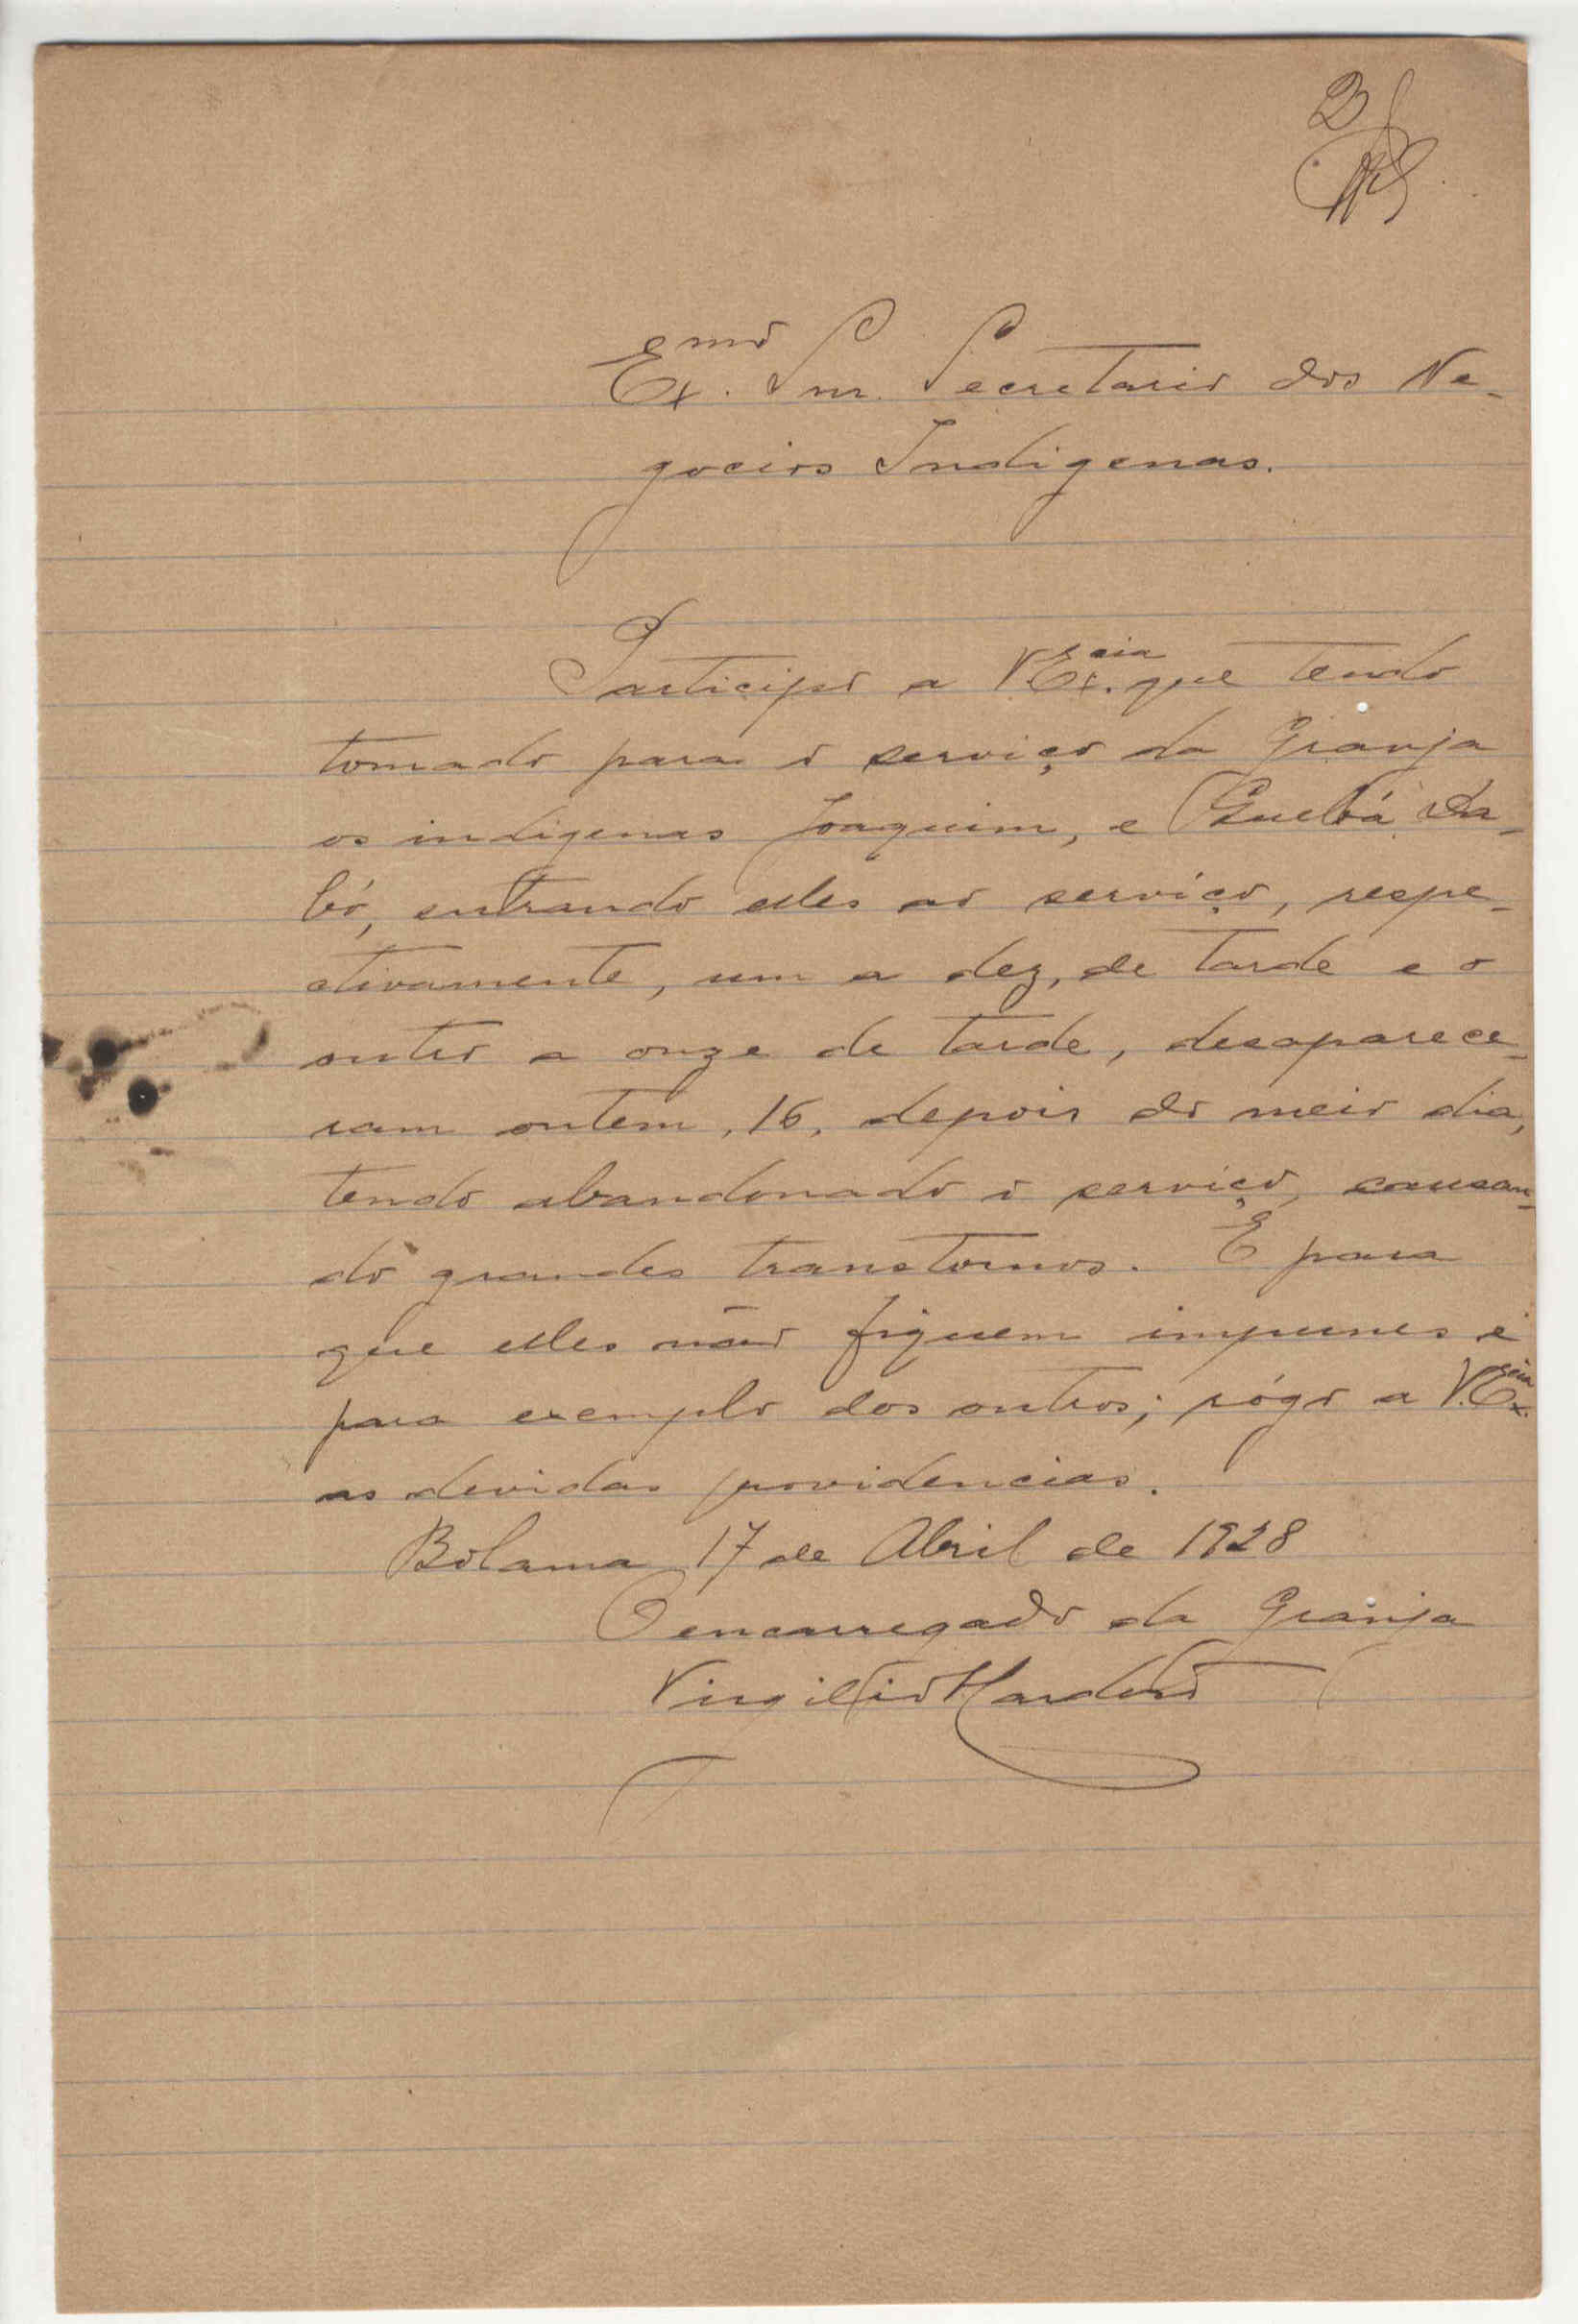 2
Ex.mo Snr. Secretario dos Ne-
gocios Indigenas.
Participo a V. Ex.cia que tendo
tomado para o serviço da Granja
os indigenas Joaquim, e
bó, entrando elles ao serviço, respe-
ctivamente, um a dez, de tarde e o
outro a onze de tarde, desaparece-
ram ontem, 16, depois do meio dia,
tendo abandonado o serviço, causan-
do grandes transtornos. E para
que elles não fiquem impunes e
para exemplo dos outros; rógo a V. Ex.cia
as devidas providencias.
Bolama 17 de Abril de 1928
O encarregado da Granja
Virgilio